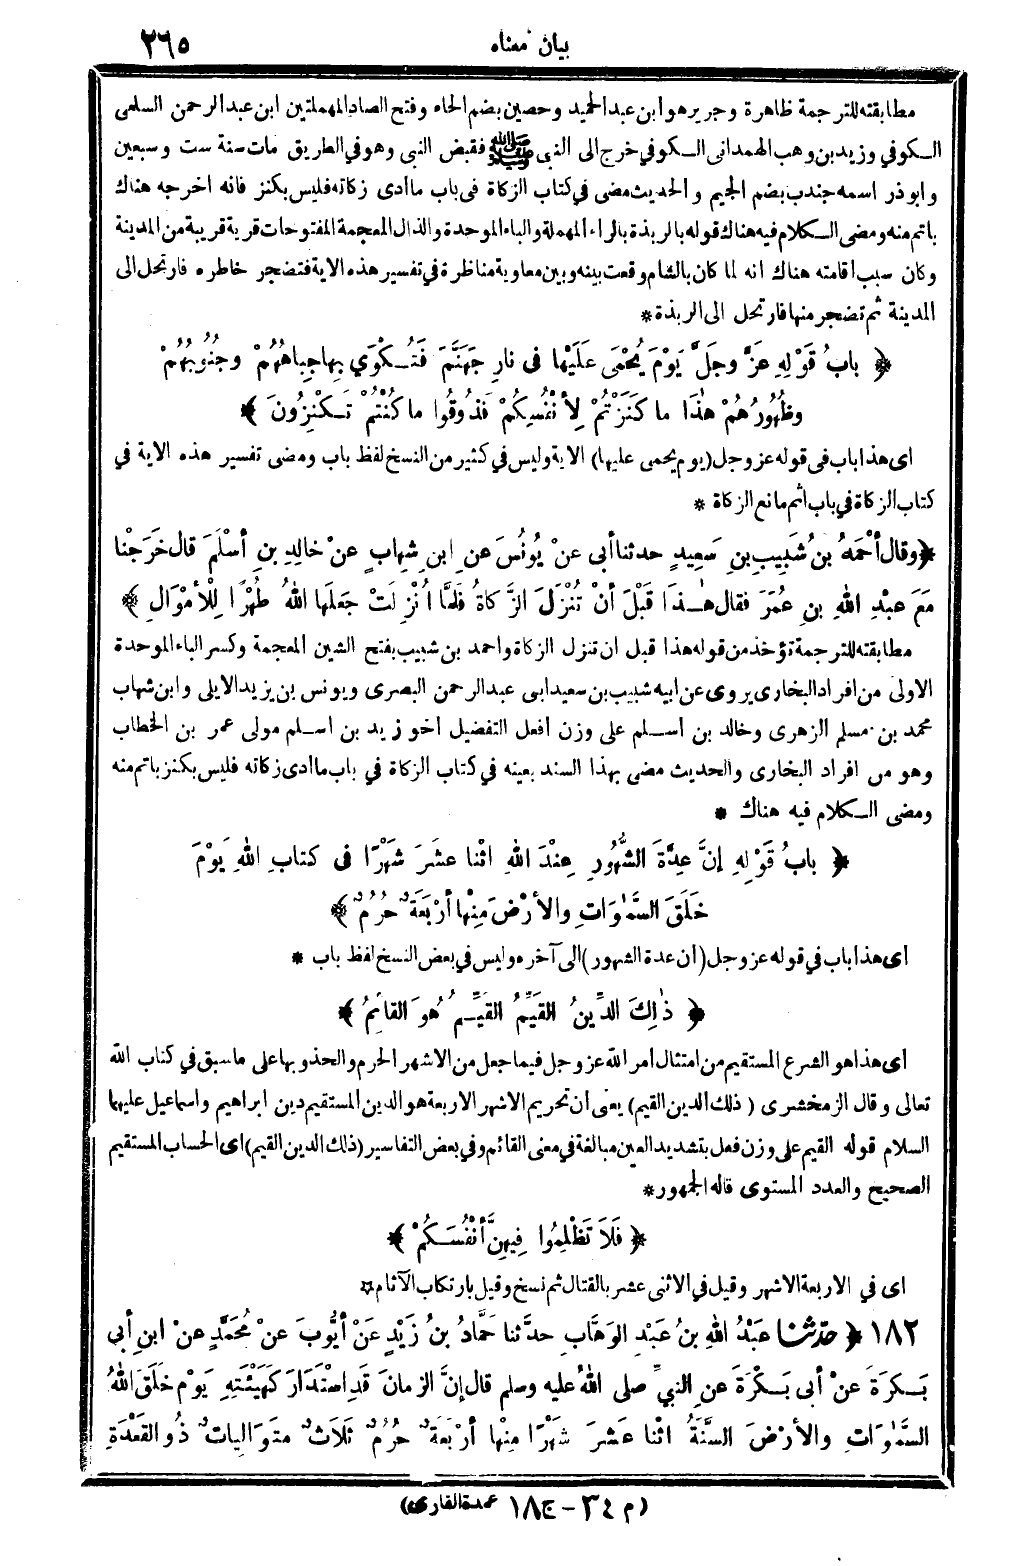 بيان معناه ٢٦٥
مطابقته للترجمة ظاهرة وجرير هو ابن عبد الحميد وحصين بضم الحاء وفتح الصاد المهملتين ابن عبد الرحمن السلمى
الكوفي وزيد بن وهب الهمدانى الكوفي خرج الى النبى ﷺ فقبض النبى وهو في الطريق مات سنة ست وسبعين
وابو ذر اسمه جندب بضم الجيم والحديث مضى في كتاب الزكاة في باب ما ادى زكاته فليس بكنز فانه اخرجه هناك
باتم منه ومضى الكلام فيه هناك قوله بالربذة بالراء المهملة والباء الموحدة والذال المعجمة المفتوحات قرية قريبة من المدينة
وكان سبب اقامته هناك انه لما كان بالشام وقعت بينه وبين معاوية مناظرة في تفسير هذه الاية فتضجر خاطره فارتحل الى
المدينة ثم تضجر منها فارتحل الى الربذة *
﴿ بابُ قَوْلِهِ عَزَّ وجَلَّ يَوْمَ يُحْمَى عَلَيْها فى نارِ جَهَنَّمَ فَتُكْوَي بِها جِباهُهُمْ وجُنُوبُهُمْ
وظُهُورُهُمْ هٰذَا ما كَنَزْتُمْ لِأنْفُسِكُمْ فَذُوقُوا ما كُنْتُمْ تَكْنِزُونَ ﴾
اى هذا باب فى قوله عز وجل (يوم يحمى عليها) الاية وليس في كثير من النسخ لفظ باب ومضى تفسير هذه الاية في
كتاب الزكاة في باب اثم مانع الزكاة *
﴿وقال أحْمَدُ بنُ شَبِيبِ بنِ سَعِيدٍ حدثنا أبى عنْ يُونُسَ عنِ ابنِ شِهابٍ عنْ خالِدِ بنِ أسْلَمَ قال خَرَجْنا
مَعَ عبْدِ اللهِ بنِ عُمَرَ فقال هٰذَا قَبْلَ أنْ تُنْزَلَ الزَّكاةُ فلَمَّا اُنْزِلَتْ جَعَلَها اللهُ طُهْرًا لِلْأمْوَالِ﴾
مطابقته للترجمة تؤخذ من قوله هذا قبل ان تنزل الزكاة واحمد بن شبيب بفتح الشين المعجمة وكسر الباء الموحدة
الاولى من افراد البخارى يروى عن ابيه شبيب بن سعيد ابى عبد الرحمن البصرى ويونس بن يزيد الايلى وابن شهاب
محمد بن مسلم الزهرى وخالد بن أسلم على وزن افعل التفضيل اخو زيد بن اسلم مولى عمر بن الخطاب
وهو من افراد البخارى والحديث مضى بهذا السند بعينه في كتاب الزكاة في باب ما ادى زكاته فليس بكنز باتم منه
ومضى الكلام فيه هناك *
﴿ بابُ قَوْلِهِ إنَّ عِدَّةَ الشُّهُورِ عِنْدَ اللهِ اثْنا عشَرَ شَهْرًا فى كتابِ اللهِ يَوْمَ
خَلَقَ السَّمٰوَاتِ والأرْضَ مِنْها أرْبَعَةٌ حُرُمٌ ﴾
اى هذا باب في قوله عز وجل (ان عدة الشهور) الى آخره وليس في بعض النسخ لفظ باب *
﴿ ذٰلِكَ الدِّينُ القَيِّمُ القَيِّمُ هُوَ القائِمُ ﴾
اى هذا هو الشرع المستقيم من امتثال امر الله عز وجل فيما جعل من الاشهر الحرم والحذو بها على ما سبق في كتاب الله
تعالى وقال الزمخشرى (ذلك الدين القيم) يعنى ان تحريم الاشهر الاربعة هو الدين المستقيم دين ابراهيم واسماعيل عليهما
السلام قوله القيم على وزن فعل بتشديد العين مبالغة في معنى القائم وفي بعض التفاسير (ذلك الدين القيم) اى الحساب المستقيم
الصحيح والعدد المستوى قاله الجمهور *
﴿ فَلَا تَظْلِمُوا فِيهِنَّ أنْفُسَكُمْ ﴾
اى في الاربعة الاشهر وقيل في الاثنى عشر بالقتال ثم نسخ وقيل بارتكاب الآثام *
١٨٢ ﴿ حدّثنا عبْدُ اللهِ بنُ عبْدِ الوَهَّابِ حدَّثنا حَمَّادُ بنُ زَيْدٍ عَنْ أيُّوبَ عنْ مُحَمَّدٍ عنْ ابنِ أبى
بَكرَةَ عنْ أبى بَكْرَةَ عنِ النبيِّ صلى اللهُ عليه وسلم قال إنَّ الزمانَ قدِ اسْتَدَارَ كَهَيْئَتِهِ يَوْمَ خَلَقَ اللهُ
السَّمٰوَاتِ والأرْضَ السَّنَةُ اثْنا عَشَرَ شَهْرًا مِنْها أرْبَعَةٌ حُرُمٌ ثَلَاثٌ متَوَالِياتٌ ذُو القَعْدَةِ
(م ٣٤ – ج ١٨ عمدة القارى)